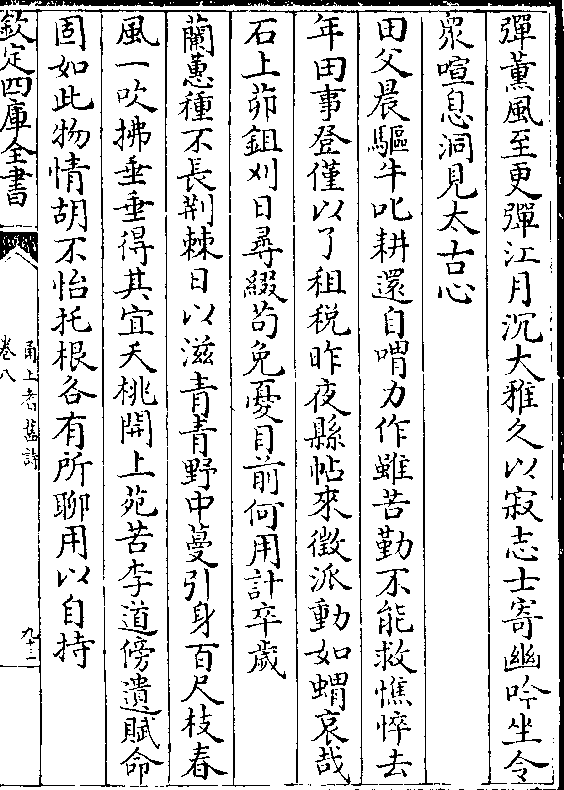 彈薰風至更彈江月沉大雅久以寂志士寄幽吟坐令
衆喧息洞見太古心
田父晨驅牛叱耕還自喟力作雖苦勤不能救憔悴去
年田事登僅以了租税昨夜縣帖來徵派動如蝟哀哉
石上茆鉏刈日尋綴茍免憂目前何用計卒歲
蘭蕙種不長荆棘日以滋青青野中蔓引身百尺枝春
風一吹拂垂垂得其宜夭桃開上苑苦李道傍遺賦命
固如此物情胡不怡托根各有所聊用以自持
欽定四庫全書
甬上耆舊詩
卷八
九十二